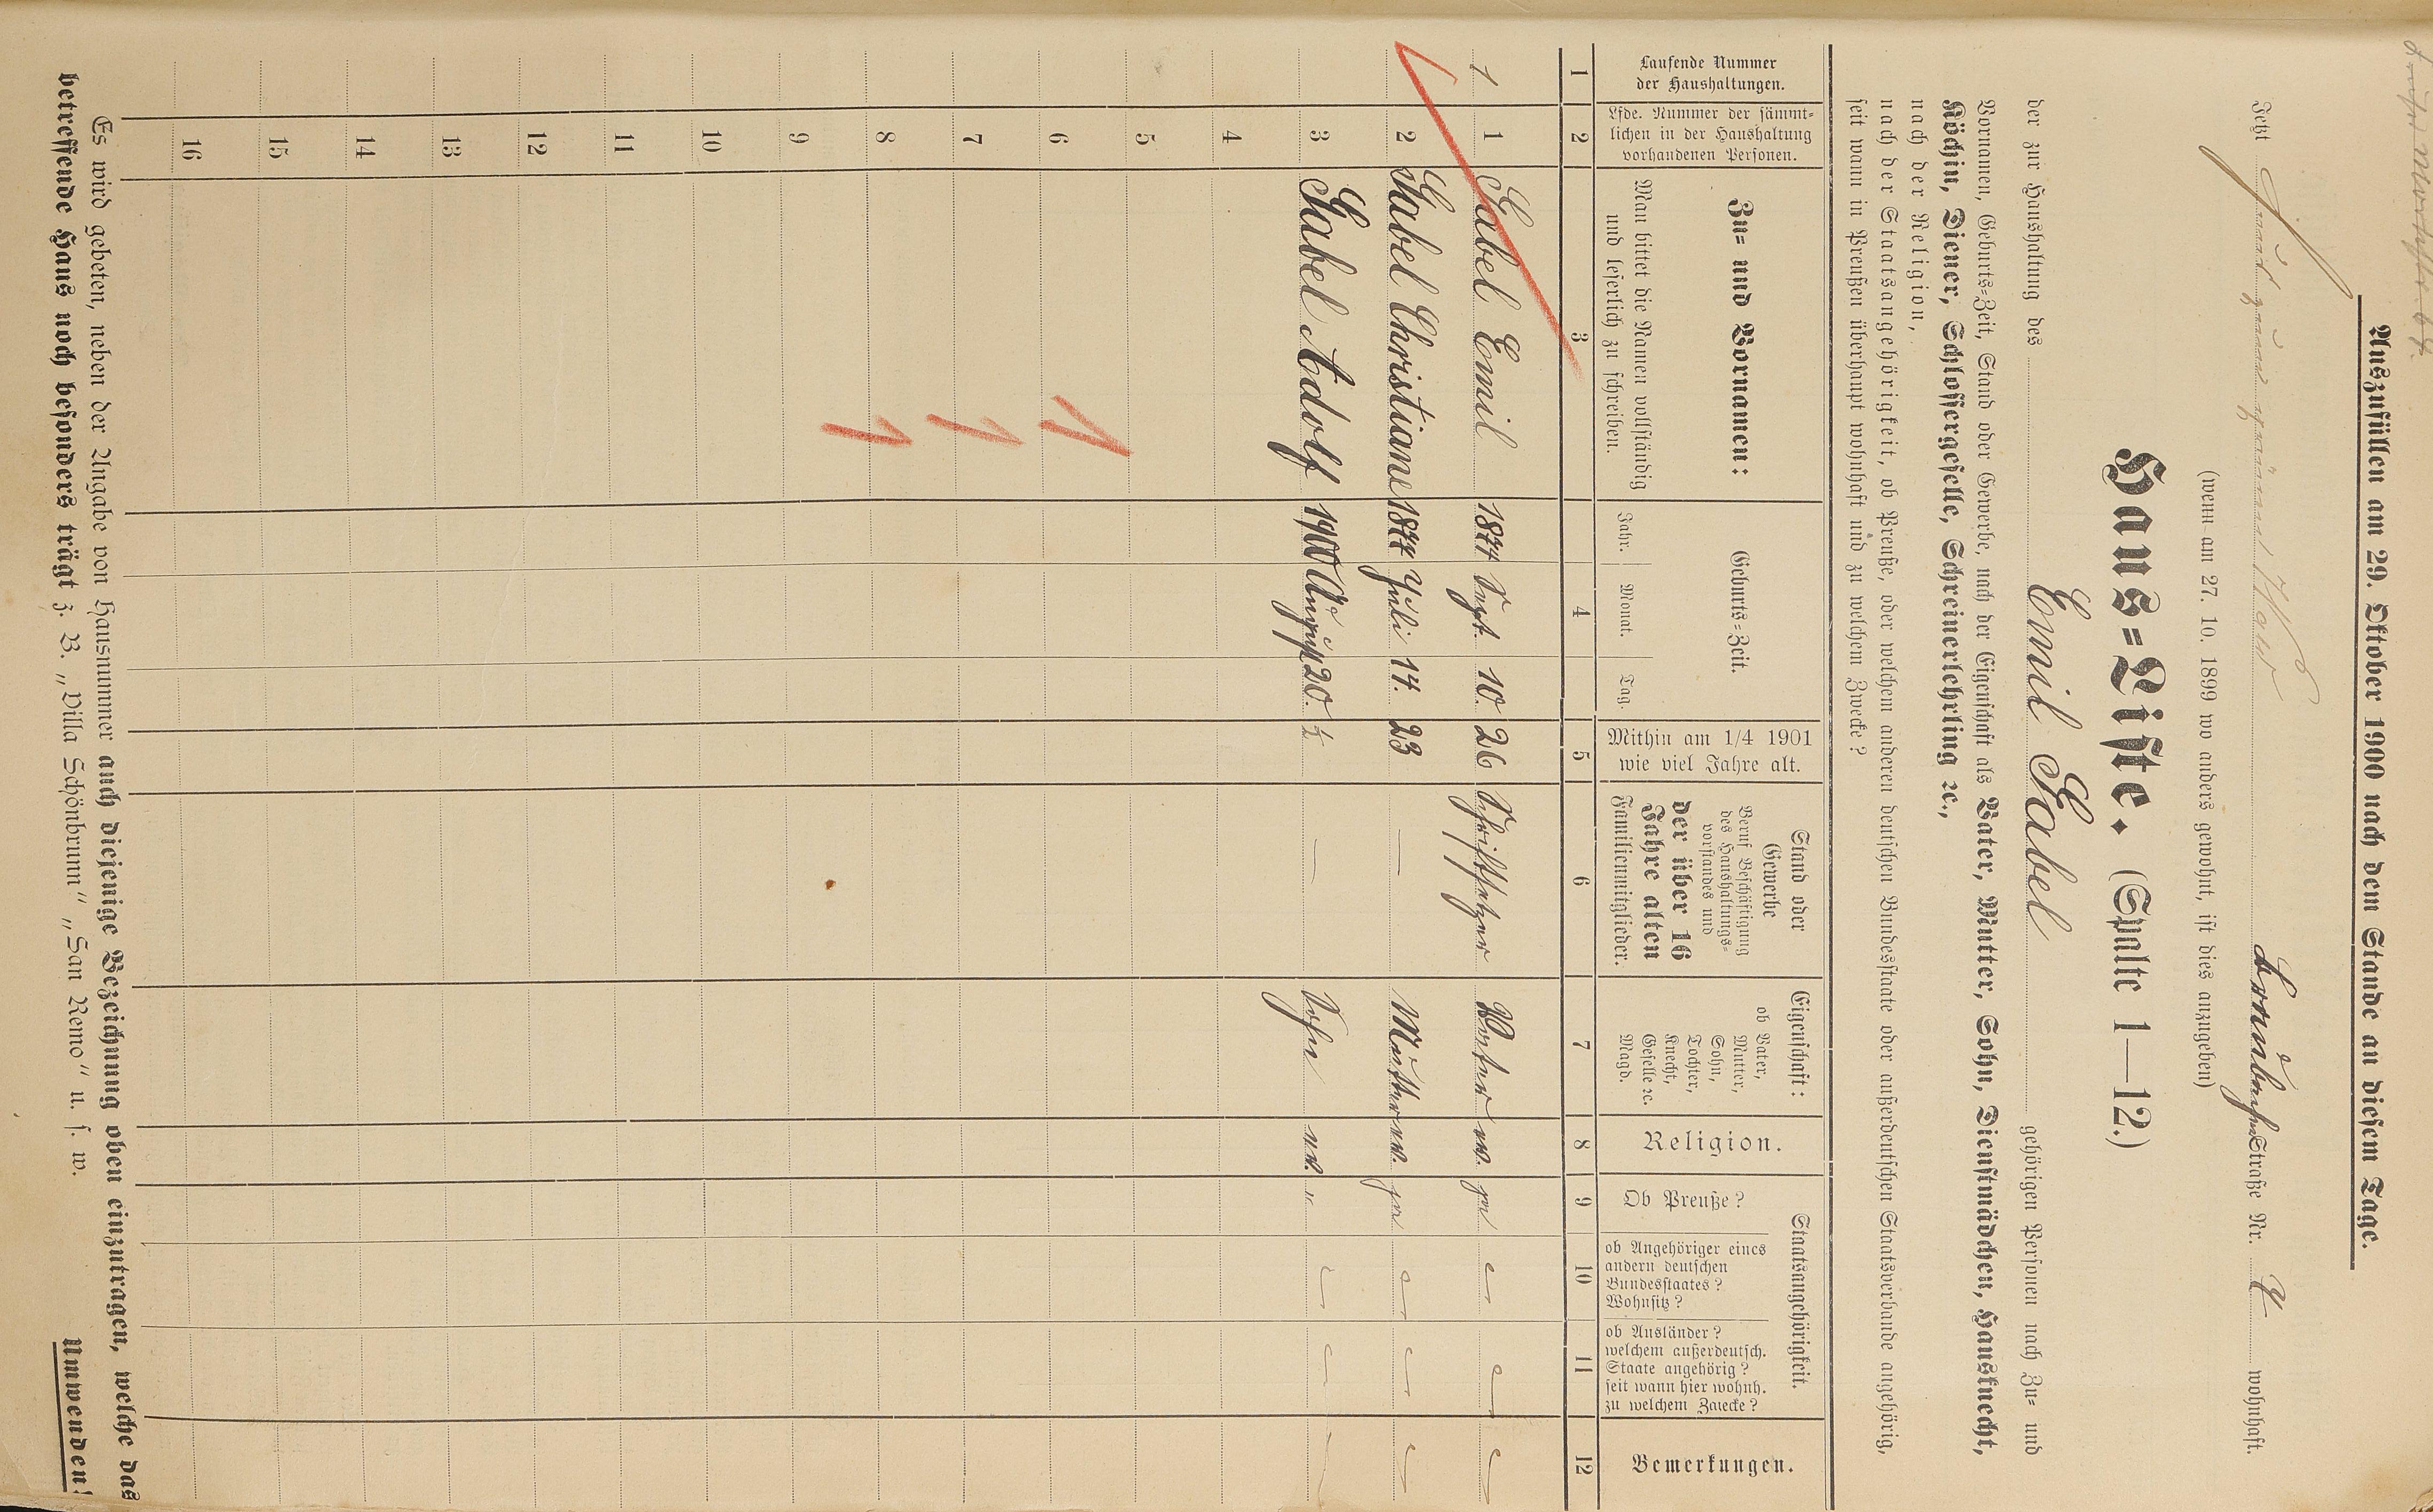 Auszufüllen am 29. Oktober 1900 nach dem Stande an diesem Tage.
Jetzt Straße Nr. wohnhaft.
(wenn am 27. 10. 1899 wo anders gewohnt, ist dies anzugeben)
Haus=Liste. (Spalte 1—12.)
der zur Haushaltung des Emil Gabel gehörigen Personen nach Zu= und
Vornamen, Geburts=Zeit, Stand oder Gewerbe, nach der Eigenschaft als Vater, Mutter, Sohn, Dienstmädchen, Hausknecht,
Köchin, Diener, Schlossergeselle, Schreinerlehrling ꝛc.,
nach der Religion,
nach der Staatsangehörigkeit, ob Preuße, oder welchem anderen deutschen Bundesstaate oder außerdeutschen Staatsverbande angehörig,
seit wann in Preußen überhaupt wohnhaft und zu welchem Zwecke?
Laufende Nummer
der Haushaltungen.
Lfde. Nummer der sämmt=
lichen in der Haushaltung
vorhandenen Personen.
Zu= und Vornamen:
Man bittet die Namen vollständig
und leserlich zu schreiben.
Geburts=Zeit.
Jahr. Monat. Tag.
Mithin am 1/4 1901
wie viel Jahre alt.
Stand oder
Gewerbe
Beruf Beschäftigung
des Haushaltungs=
vorstandes und
der über 16
Jahre alten
Familienmitglieder.
Eigenschaft:
ob Vater,
Mutter,
Sohn,
Tochter,
Knecht,
Geselle ꝛc.
Magd.
Religion.
Staatsangehörigkeit.
Ob Preuße?
ob Angehöriger eines
andern deutschen
Bundesstaates?
Wohnsitz?
ob Ausländer?
welchem außerdeutsch.
Staate angehörig?
seit wann hier wohnh.
zu welchem Zwecke?
Bemerkungen.
1 2 3 4 5 6 7 8 9 10 11 12
1 1 Gabel Emil 1874 Sept. 10. 26 Schriftsetzer Vater ev. ja
2 Gabel Christiane 1877 Juli 14. 23 — Mutter ev. ja
3 Gabel Adolf 1900 August 20. ½ — Sohn ev. "
4
5
6
7
8
9
10
11
12
13
14
15
16
Es wird gebeten, neben der Angabe von Hausnummer auch diejenige Bezeichnung oben einzutragen, welche das
betreffende Haus noch besonders trägt z. B. „Villa Schönbrunn" „San Remo" u. s. w.
Umwenden!